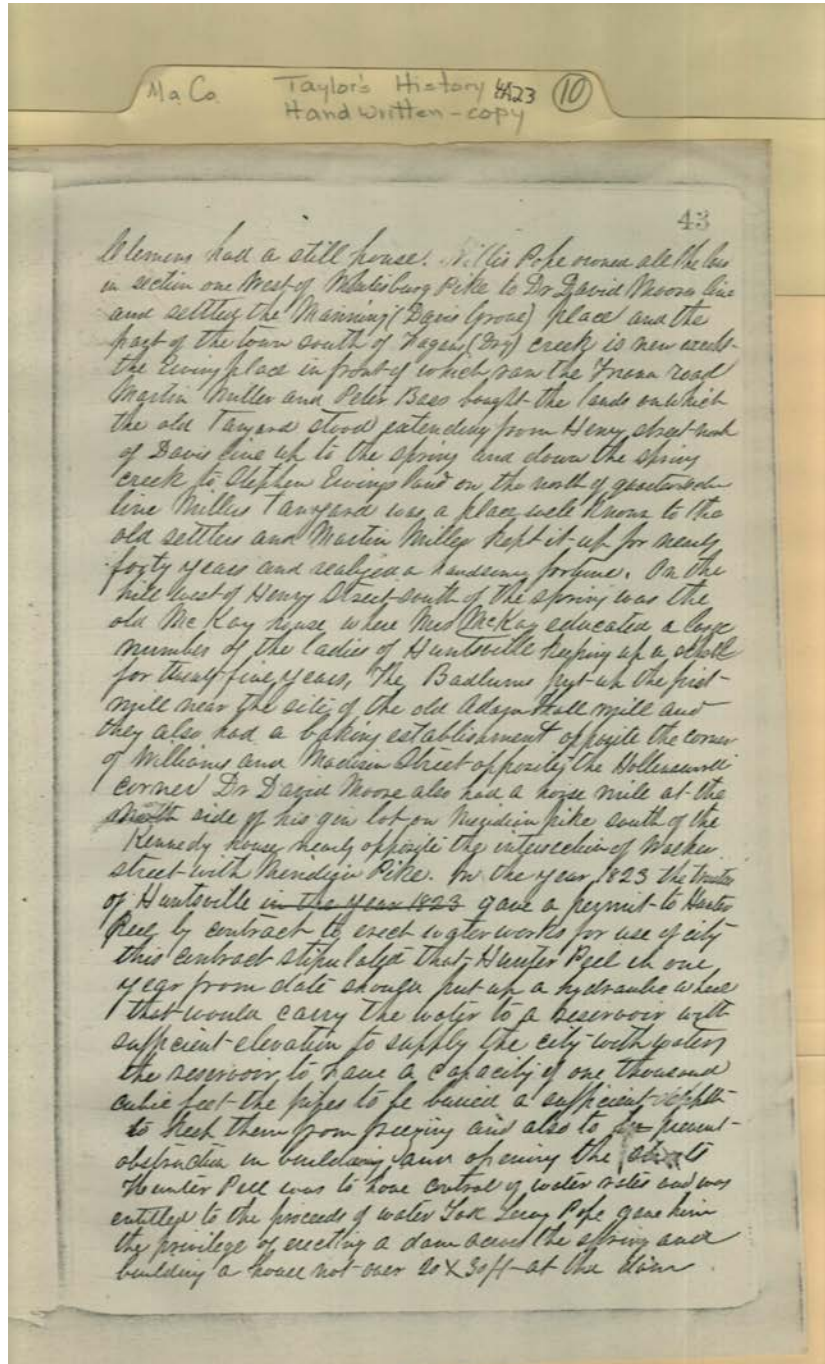 Ma. Co. Taylor's History 4A23 10
Hand written - copy
43
Clemens had a still house. Willis Pope owned all the
in section one West of Pike to Dr David Moores line
and settled the Manning (Davis Grove) place and the
part of the town south of Fagans (Dry) creek is now
the Ewing place in front of which ran the road
Martin Miller and Peter Bass bought the lands on which
the old Tanyard stood extending from Henry street
of Davis line up to the spring and down the spring
creek to Stephen Ewings land on the north of
line Millers Tanyard was a place well known to the
old settlers and Martin Miller kept it up for nearly
forty years and realized a handsome fortune. On the
hill west of Henry Street south of the spring was the
old McKay house where Mrs McKay educated a large
number of the ladies of Huntsville keeping up a school
for twenty five years, The Badlums put up the first
mill near the site of the old Adam Hall mill and
they also had a baking establishment opposite the corner
of Williams and Madison Street opposite the
corner Dr David Moore also had a horse mill at the
side of his gin lot on Meridian pike south of the
Kennedy house nearly opposite the intersection of
street with Meridian Pike. In the year 1823 the trustees
of Huntsville in the year 1823 gave a permit to Hunter
Peel by contract to erect water works for use of city
this contract stipulated that Hunter Peel in one
year from date should put up a hydraulic wheel
that would carry the water to a reservoir with
sufficient elevation to supply the city with water
the reservoir to have a capacity of one thousand
cubic feet the pipes to be buried a sufficient depth
to keep them from freezing and also to prevent
obstruction in building and opening the streets
Hunter Peel was to have control of water rates and was
entitled to the proceeds of water Tax Leroy Pope gave him
the privilege of erecting a dam across the spring and
building a house not over 20 X 30 ft at the dam